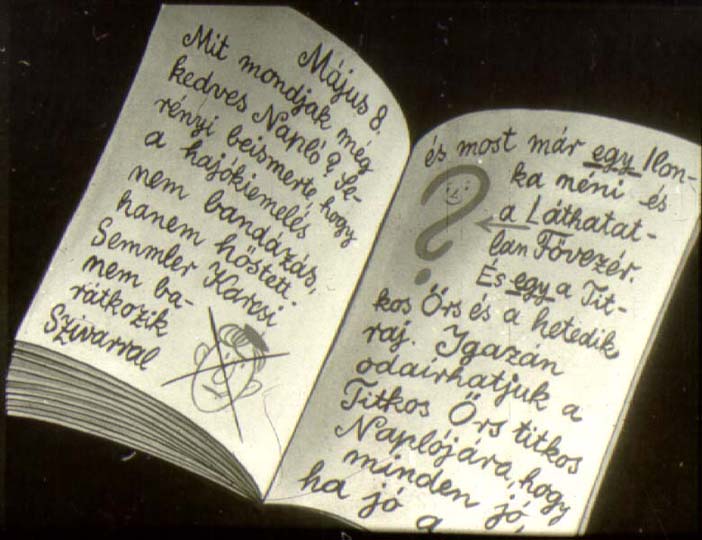 Május 8.
Mit mondjak még
kedves Napló? Se-
rényi beismerte, hogy
a hajókiemelés
nem bandázás,
hanem hőstett.
Semmler Karcsi
nem ba-
rátkozik
Szivarral
és most már egy Ilon-
ka néni és
a Láthatat-
lan Fővezér.
És egy a Tit-
kos Őrs és a hetedik
raj. Igazán
odaírhatjuk a
Titkos Őrs titkos
Naplójára, hogy
minden jó,
ha jó a